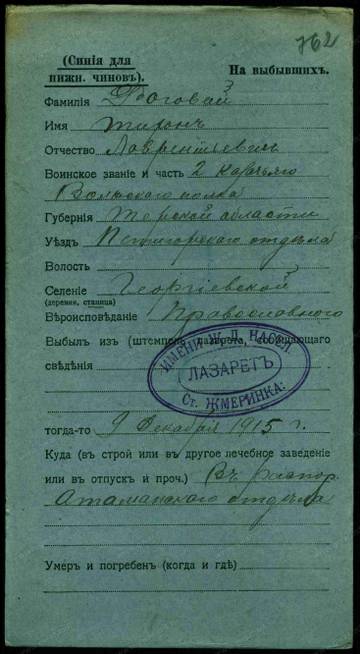 762
(Синія для
нижн. чиновъ).
На выбывшихъ.
Фамилія
Имя Тихонъ
Отчество Лаврентьевичъ
Воинское званіе и часть 2 казачьяго
Волжскаго полка
Губернія Терской области
Уѣздъ Пятигорскаго отдѣла
Волость
Селеніе Георгіевской
(деревня, станица)
Вѣроисповѣданіе Православнаго
Выбылъ изъ (штемпель лазарета, сообщающаго
свѣдѣнія)
ИМЕНИ Ж. Д. НАСЕЛ.
ЛАЗАРЕТЪ
Ст. ЖМЕРИНКА:
тогда-то 9 Декабря 1915 г.
Куда (въ строй или въ другое лечебное заведеніе
или въ отпускъ и проч.) Въ распор.
Атаманскаго отдѣла
Умеръ и погребенъ (когда и гдѣ)